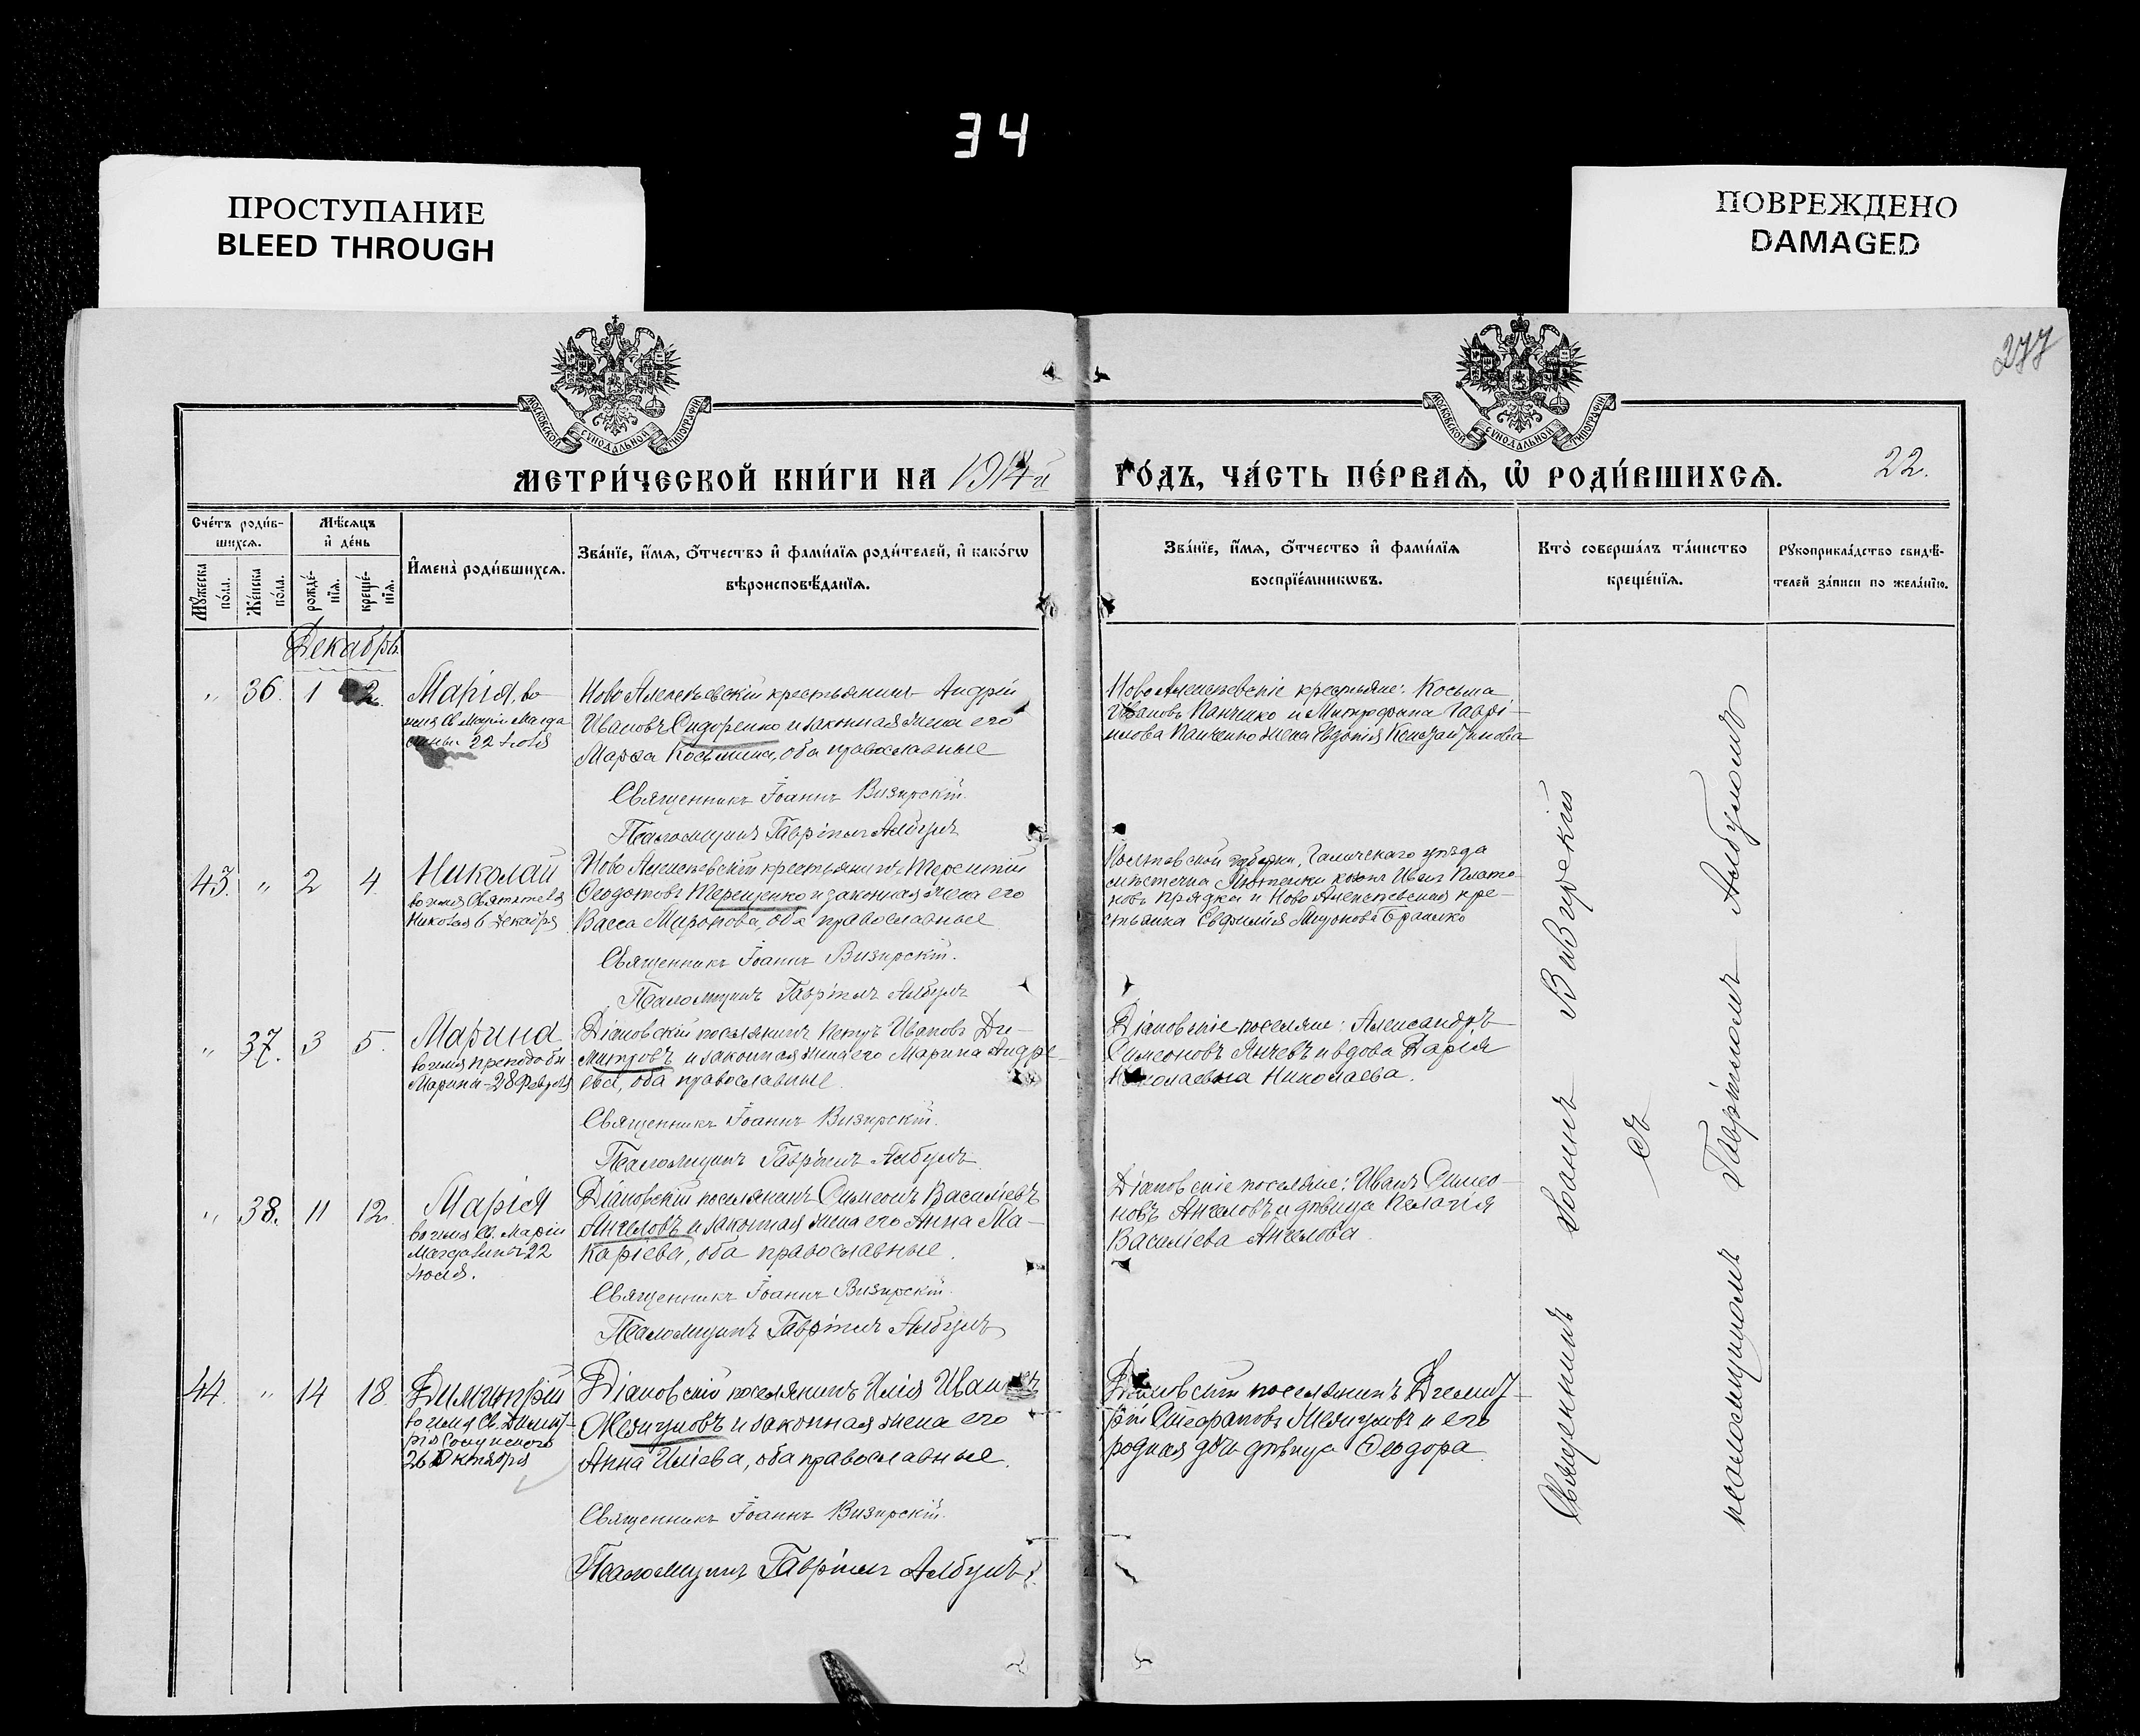 34
ПРОСТУПАНИЕ
BLEED THROUGH
ПОВРЕЖДЕНО
DAMAGED
277
МОСКОВСКОЙ СѴНОДАЛЬНОЙ ТИПОГРАФІИ
МОСКОВСКОЙ СѴНОДАЛЬНОЙ ТИПОГРАФІИ
МЕТРИ́ЧЕСКОЙ КНИ́ГИ НА 1914й
ГО́ДЪ, ЧА́СТЬ ПЕ́РВАѦ, Ѽ РОДИ́ВШИХСѦ.
22.
Сче́тъ роди́в-
шихсѧ.
Мѣ́сяцъ
и҆ де́нь
Мꙋ́жеска
по́ла.
Же́нска
по́ла.
рожде́-
нїѧ.
креще́-
нїѧ.
И҆мена̀ роди́вшихсѧ.
Зва́нїе, и҆́мѧ, ѻ҆́тчество и҆ фами́лїѧ роди́телей, и҆ како́гѡ
вѣроисповѣ́данїѧ.
Зва́нїе, и҆́мѧ, ѻ҆́тчество и҆ фами́лїѧ
воспрїе́мникѡвъ.
Кто̀ соверша́лъ та́инство
креще́нїѧ.
Рꙋкоприкла́дство свидѣ́-
телей за́писи по жела́нїю.
Декабрь
" 36. 1 2
Марія, во
имя Св Маріи Магда
22 Іюля
Ново Алексѣевскій крестьянинъ Андрій
Ивановъ Сидоренко и законная жена его
Марѳа Косьмина, оба православные
Священникъ Іоаннъ Визирскій.
Псаломщикъ Гавріилъ Албулъ
Ново Алексѣевскіе крестьяне: Косьма
Ивановъ Панченко и Митрофана Гаврі-
илова Панченко жена Евдокія Константинова
43. " 2 4.
Николай
во имя Святителя
Николая 6 Декабря
Ново Алексѣевскій крестьянинъ Терентій
Ѳеодотовъ Терещенко и законная жена его
Васса Миронова, оба православные
Священникъ Іоаннъ Визирскій.
Псаломщикъ Гавріилъ Албулъ
губерніи, Галичскаго уѣзда
Иванъ Плато-
новъ Прядка и Ново Алексѣевская кре-
стьянка Евфимія Миронова
" 37. 3 5.
Марина
во имя преподобн
Марины 28 Февраля
Діановскій поселянинъ Петръ Ивановъ Ди-
митровъ и законная жена его Марина Андре-
ева, оба православные.
Священникъ Іоаннъ Визирскій.
Псаломщикъ Гавріилъ Албулъ
Діановскіе поселяне: Александръ
Симеоновъ Янчевъ и вдова Дарія
Николаевна Николаева.
" 38. 11 12.
Марія
во имя Св. Маріи
Магдалины 22
Іюля.
Діановскій поселянинъ Симеонъ Василіевъ
Ангеловъ и законная жена его Анна Ма-
каріева, оба православные.
Священникъ Іоаннъ Визирскій.
Псаломщикъ Гавріилъ Албулъ
Діановскіе поселяне: Иванъ Симео-
новъ Ангеловъ и дѣвица Пелагія
Василіева Ангелова.
44. " 14 18.
Димитрій
во имя Св. Димит-
рія Солунскаго
26 Октября
Діановскій поселянинъ Илія Ивановъ
и законная жена его
Анна Иліева, оба православные.
Священникъ Іоаннъ Визирскій.
Псаломщикъ Гавріилъ Албулъ.
Діановскій поселянинъ Димит-
рій Стефановъ и его
родная дочь дѣвица Ѳеодора.
Священникъ Іоаннъ Визирскій
съ
псаломщикомъ Гавріиломъ Албуломъ